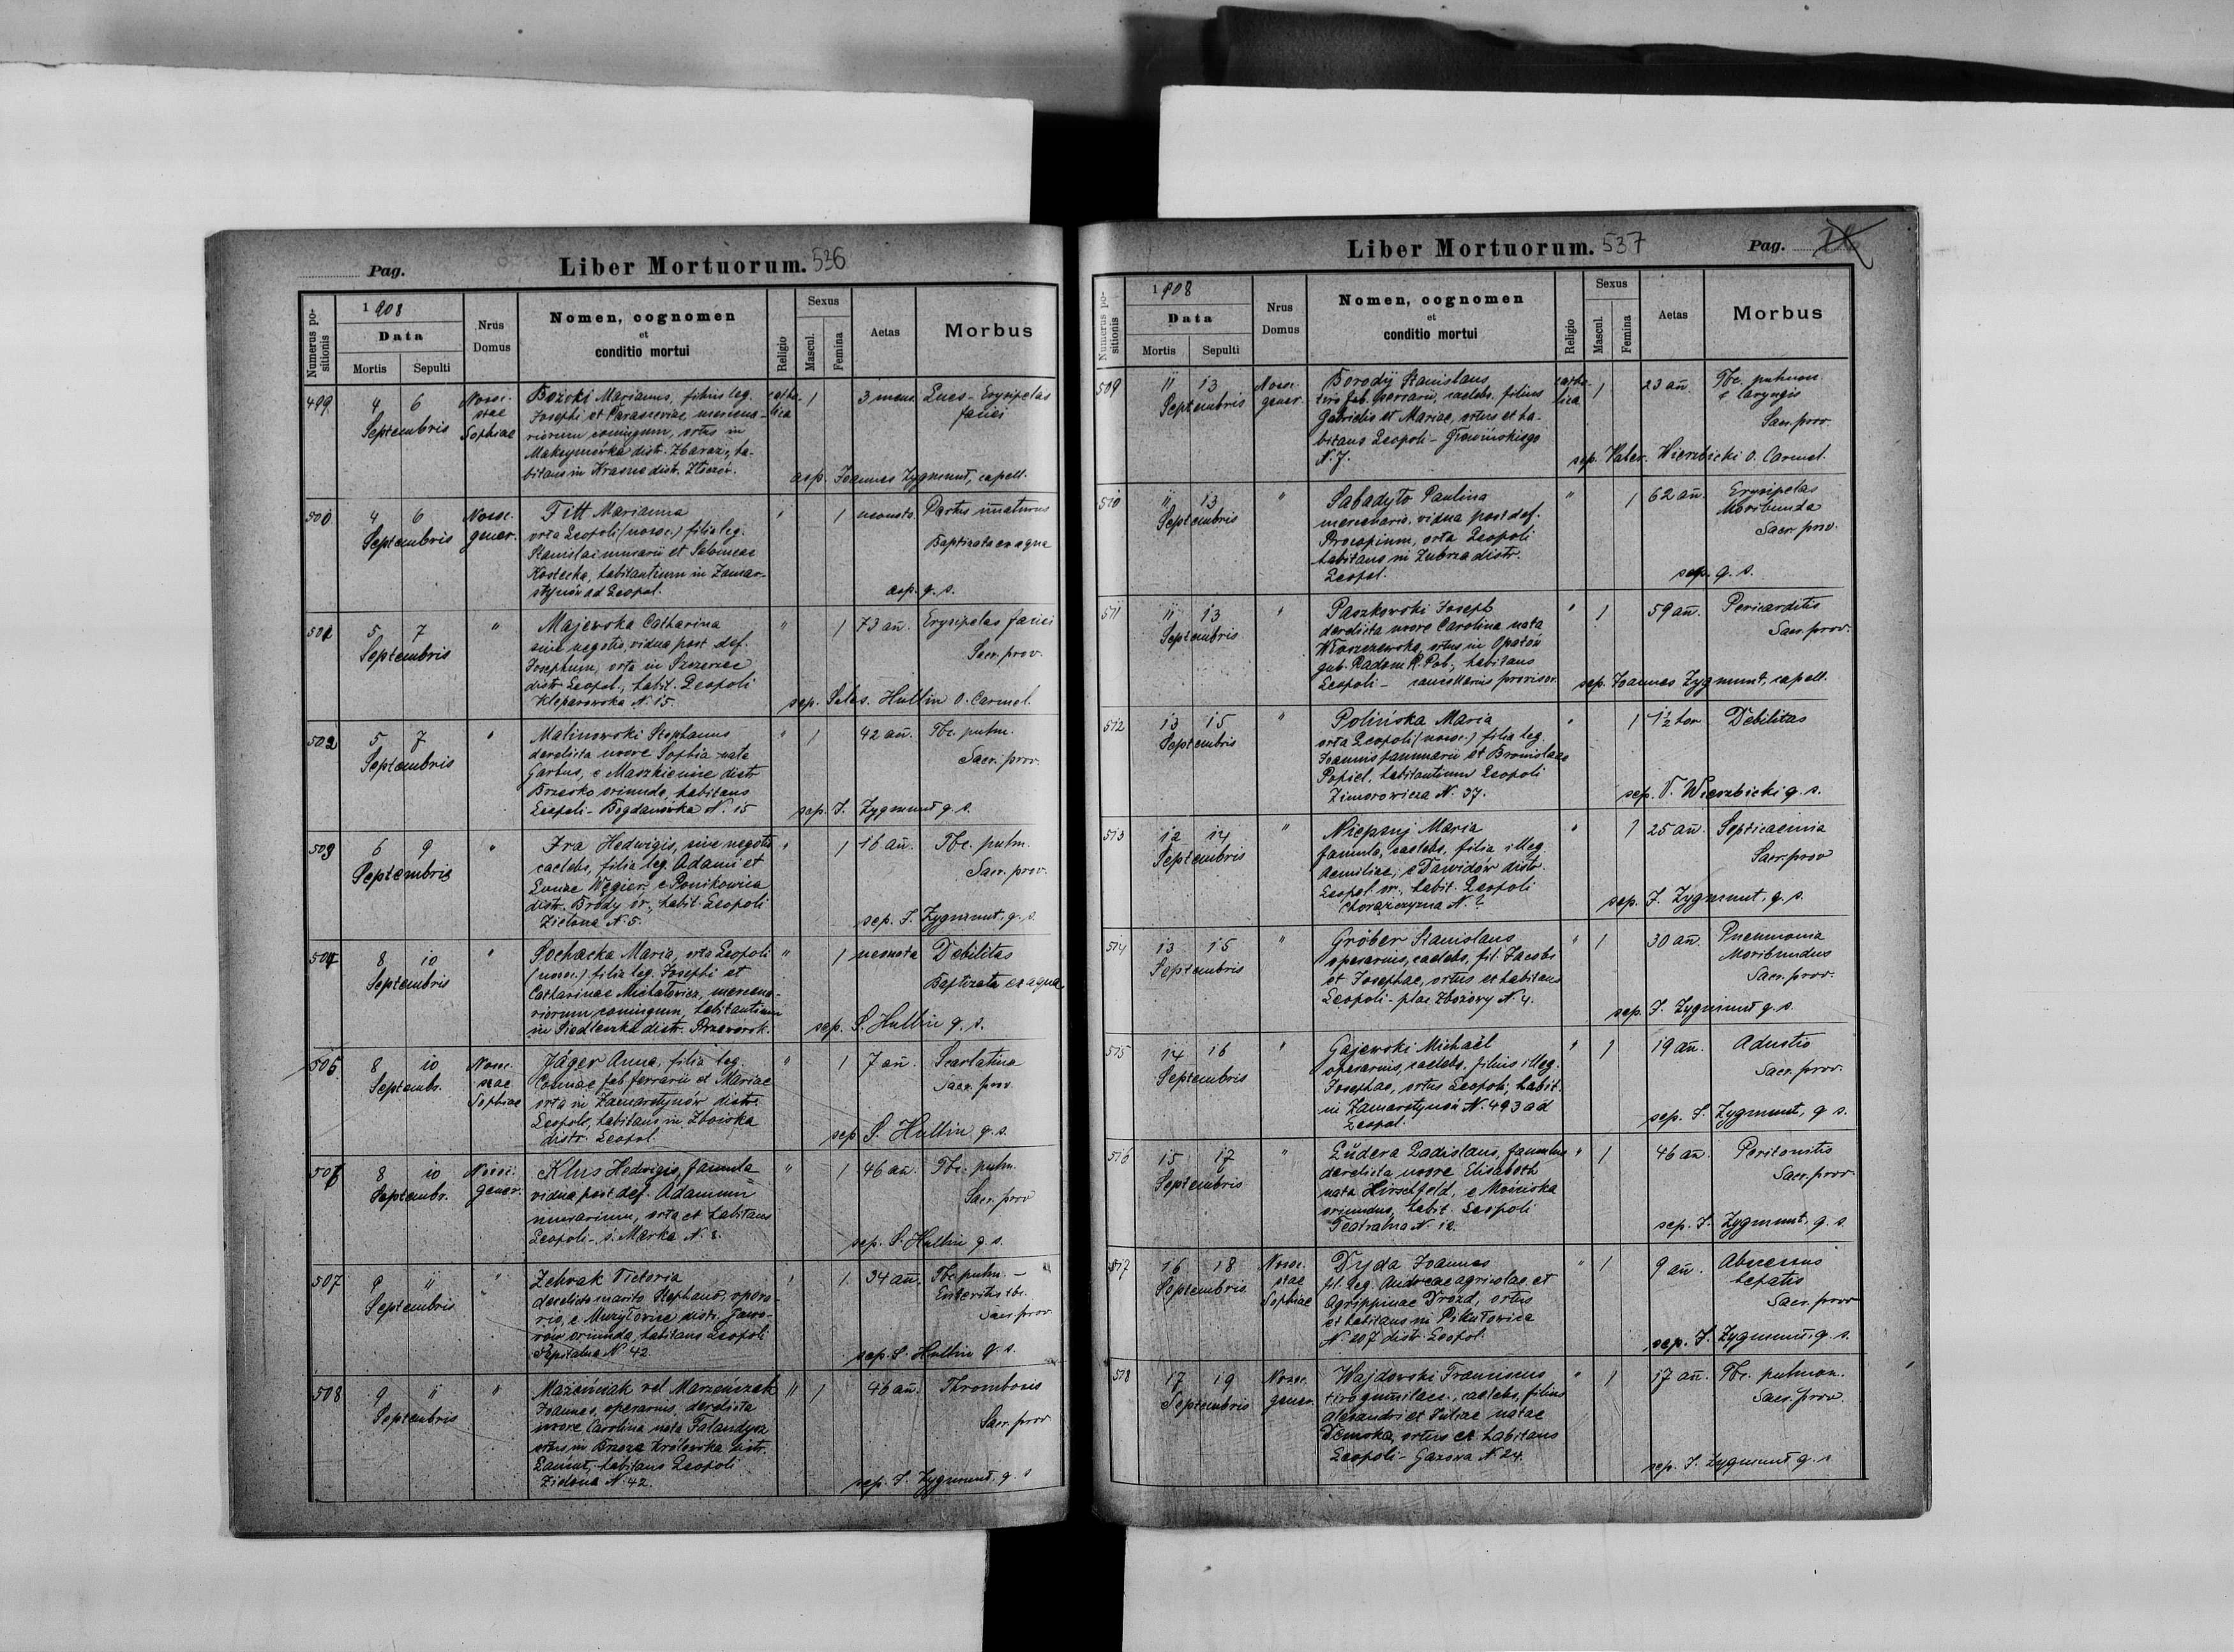 Pag.
Liber Mortuorum. 536
Numerus positionis
1908
Data
Mortis
Sepulti
Nrus Domus
Nomen, cognomen
et
conditio mortui
Religio
Sexus
Mascul.
Femina
Aetas
Morbus
499
4 6
Septembris
Nosoc.
stae
Sophiae
Bożoki Marianus, filius leg.
Josephi et Parasceviae, mercena-
riorum coniugum, ortus in
Maksymówka distr. Zbaraż, ha-
bitans in Krasne distr. Złoczów.
catho-
lica
1
3 mens.
Lues - Erysipelas
faciei
sep. Joannes Zygmunt, capell.
500
4 6
Septembris
Nosoc.
gener.
Fitt Marianna
orta Leopoli (nosoc.) filia leg.
Stanislai murarii et Salomeae
Kostecka, habitantium in Zamar-
stynów ad Leopol.
"
1
neonata
Partus immaturus
Baptizata ex aqua
sep. q. s.
501
5 7
Septembris
"
Majewska Catharina
sine negotio, vidua post def.
Josephum, orta in Szczerzec
distr. Leopol., habit. Leopoli
Kleparowska N. 15.
"
1
73 ann.
Erysipelas faciei
Sacr. prov.
sep. Seles. Hullin O. Carmel.
502
5 7
Septembris
"
Malinowski Stephanus
derelicta uxore Sophia nata
Garbus, e Maszkienice distr.
Brzesko oriundo, habitans
Leopoli - Bogdanówka N. 15
"
1
42 ann.
Tbc. pulm.
Sacr. prov.
sep. J. Zygmunt q. s.
503
6 9
Septembris
"
Fra Hedwigis, sine negotio
caelebs, filia leg. Adami et
Annae Węgier, e Ponikowica
distr. Brody or., habit. Leopoli
Zielona N. 5.
"
1
16 ann.
Tbc. pulm.
Sacr. prov.
sep. J. Zygmunt, q. s.
504
8 10
Septembris
"
Sochacka Maria, orta Leopoli
(nosoc.) filia leg. Josephi et
Catharinae Michałowicz, mercena-
riorum coniugum, habitantium
in Siedleczka distr. Przeworsk.
"
1
neonata
Debilitas
Baptizata ex aqua
sep. S. Hullin q. s.
505
8 10
Septembr.
Nosoc.
stae
Sophiae
Jäger Anna, filia leg.
fab. ferrarii et Mariae
orta in Zamarstynów distr.
Leopol., habitans in Zboiska
distr. Leopol.
"
1
7 ann.
Scarlatina
Sacr. prov.
sep. S. Hullin q. s.
506
8 10
Septembr.
Nosoc.
gener.
Klus Hedwigis, famula
vidua post def. Adamum
murarium, orta et habitans
Leopoli - ś. Marka N. 2.
"
1
46 ann.
Tbc. pulm.
Sacr. prov.
sep. S. Hullin q. s.
507
9 11
Septembris
"
Zehrak Victoria
derelicto marito Stephano, opera-
rio, e Mużyłowice distr. Jawo-
rów oriunda, habitans Leopoli
Szpitalna N. 42
"
1
34 ann.
Tbc. pulm. -
Enteritis tbc.
Sacr. prov.
sep. S. Hullin q. s.
508
9 11
Septembris
"
Maziniak vel Marzeńczak
Joannes, operarius, derelicta
uxore Carolina nata Falandysz
ortus in Brzoza Królewska distr.
Łańcut, habitans Leopoli
Zielona N. 42.
"
1
46 ann.
Thrombosis
Sacr. prov.
sep. J. Zygmunt, q. s.
Liber Mortuorum. 537
Pag.
Numerus positionis
1908
Data
Mortis
Sepulti
Nrus Domus
Nomen, cognomen
et
conditio mortui
Religio
Sexus
Mascul.
Femina
Aetas
Morbus
509
11 13
Septembris
Nosoc.
gener.
Borodij Stanislaus
tiro fab. ferrarii, caelebs, filius
Gabrielis et Mariae, ortus et ha-
bitans Leopoli -
N. 7.
catho-
lica
1
23 ann.
Tbc. pulmon.
& laryngis
Sacr. prov.
sep. Valer. Wierzbicki O. Carmel.
510
11 13
Septembris
"
Sabadyło Paulina
mercenaria, vidua post def.
Procopium, orta Leopoli
habitans in Zubrza distr.
Leopol.
"
1
62 ann.
Erysipelas
Moribunda
Sacr. prov.
sep. q. s.
511
11 13
Septembris
"
Paszkowski Joseph
derelicta uxore Carolina nata
Włoszczewska, ortus in Opatów
gub. Radom R. Pol., habitans
Leopoli - provisor.
"
1
59 ann.
Pericarditis
Sacr. prov.
sep. Joannes Zygmunt, capell.
512
13 15
Septembris
"
Polińska Maria
orta Leopoli (nosoc.) filia leg.
Joannis famularii et Bronislaae
Popiel, habitantium Leopoli
Zimorowicza N. 37.
"
1
1½ hor.
Debilitas
sep. V. Wierzbicki q. s.
513
12 14
Septembris
"
Niepsuj Maria
famula, caelebs, filia illeg.
Aemiliae, e Dawidów distr.
Leopol. or., habit. Leopoli
Chorążczyzna N. ?
"
1
25 ann.
Septicaemia
Sacr. prov
sep. J. Zygmunt, q. s.
514
13 15
Septembris
"
Gröber Stanislaus
operarius, caelebs, fil. Jacobi
et Josephae, ortus et habitans
Leopoli - plac Zbożowy N. 4.
"
1
30 ann.
Pneumonia
Moribundus
Sacr. prov.
sep. J. Zygmunt q. s.
515
14 16
Septembris
"
Gajewski Michaël
operarius, caelebs, filius illeg.
Josephae, ortus Leopoli, habit.
in Zamarstynów N. 493 ad
Leopol.
"
1
19 ann.
Adustio
Sacr. prov.
sep. J. Zygmunt, q. s.
516
15 17
Septembris
"
Ludera Ladislaus, famulus
derelicta uxore Elisabeth
nata Hirschfeld, e Mościska
oriundus, habit. Leopoli
Teatralna N. 12.
"
1
46 ann.
Peritonitis
Sacr. prov.
sep. J. Zygmunt, q. s.
517
16 18
Septembris
Nosoc.
stae
Sophiae
Dyda Joannes
fil. leg. Andreae agricolae et
Agrippinae Drozd, ortus
et habitans in Pikułowice
N. 107 distr. Leopol.
"
1
9 ann.
Abscessus
hepatis
Sacr. prov
sep. J. Zygmunt, q. s.
518
17 19
Septembris
Nosoc.
gener.
Wajdowski Franciscus
tiro caelebs, filius
Alexandri et Juliae natae
Demska, ortus et habitans
Leopoli - Gazowa N. 24.
"
1
17 ann.
Tbc. pulmon.
Sacr. prov.
sep. J. Zygmunt q. s.